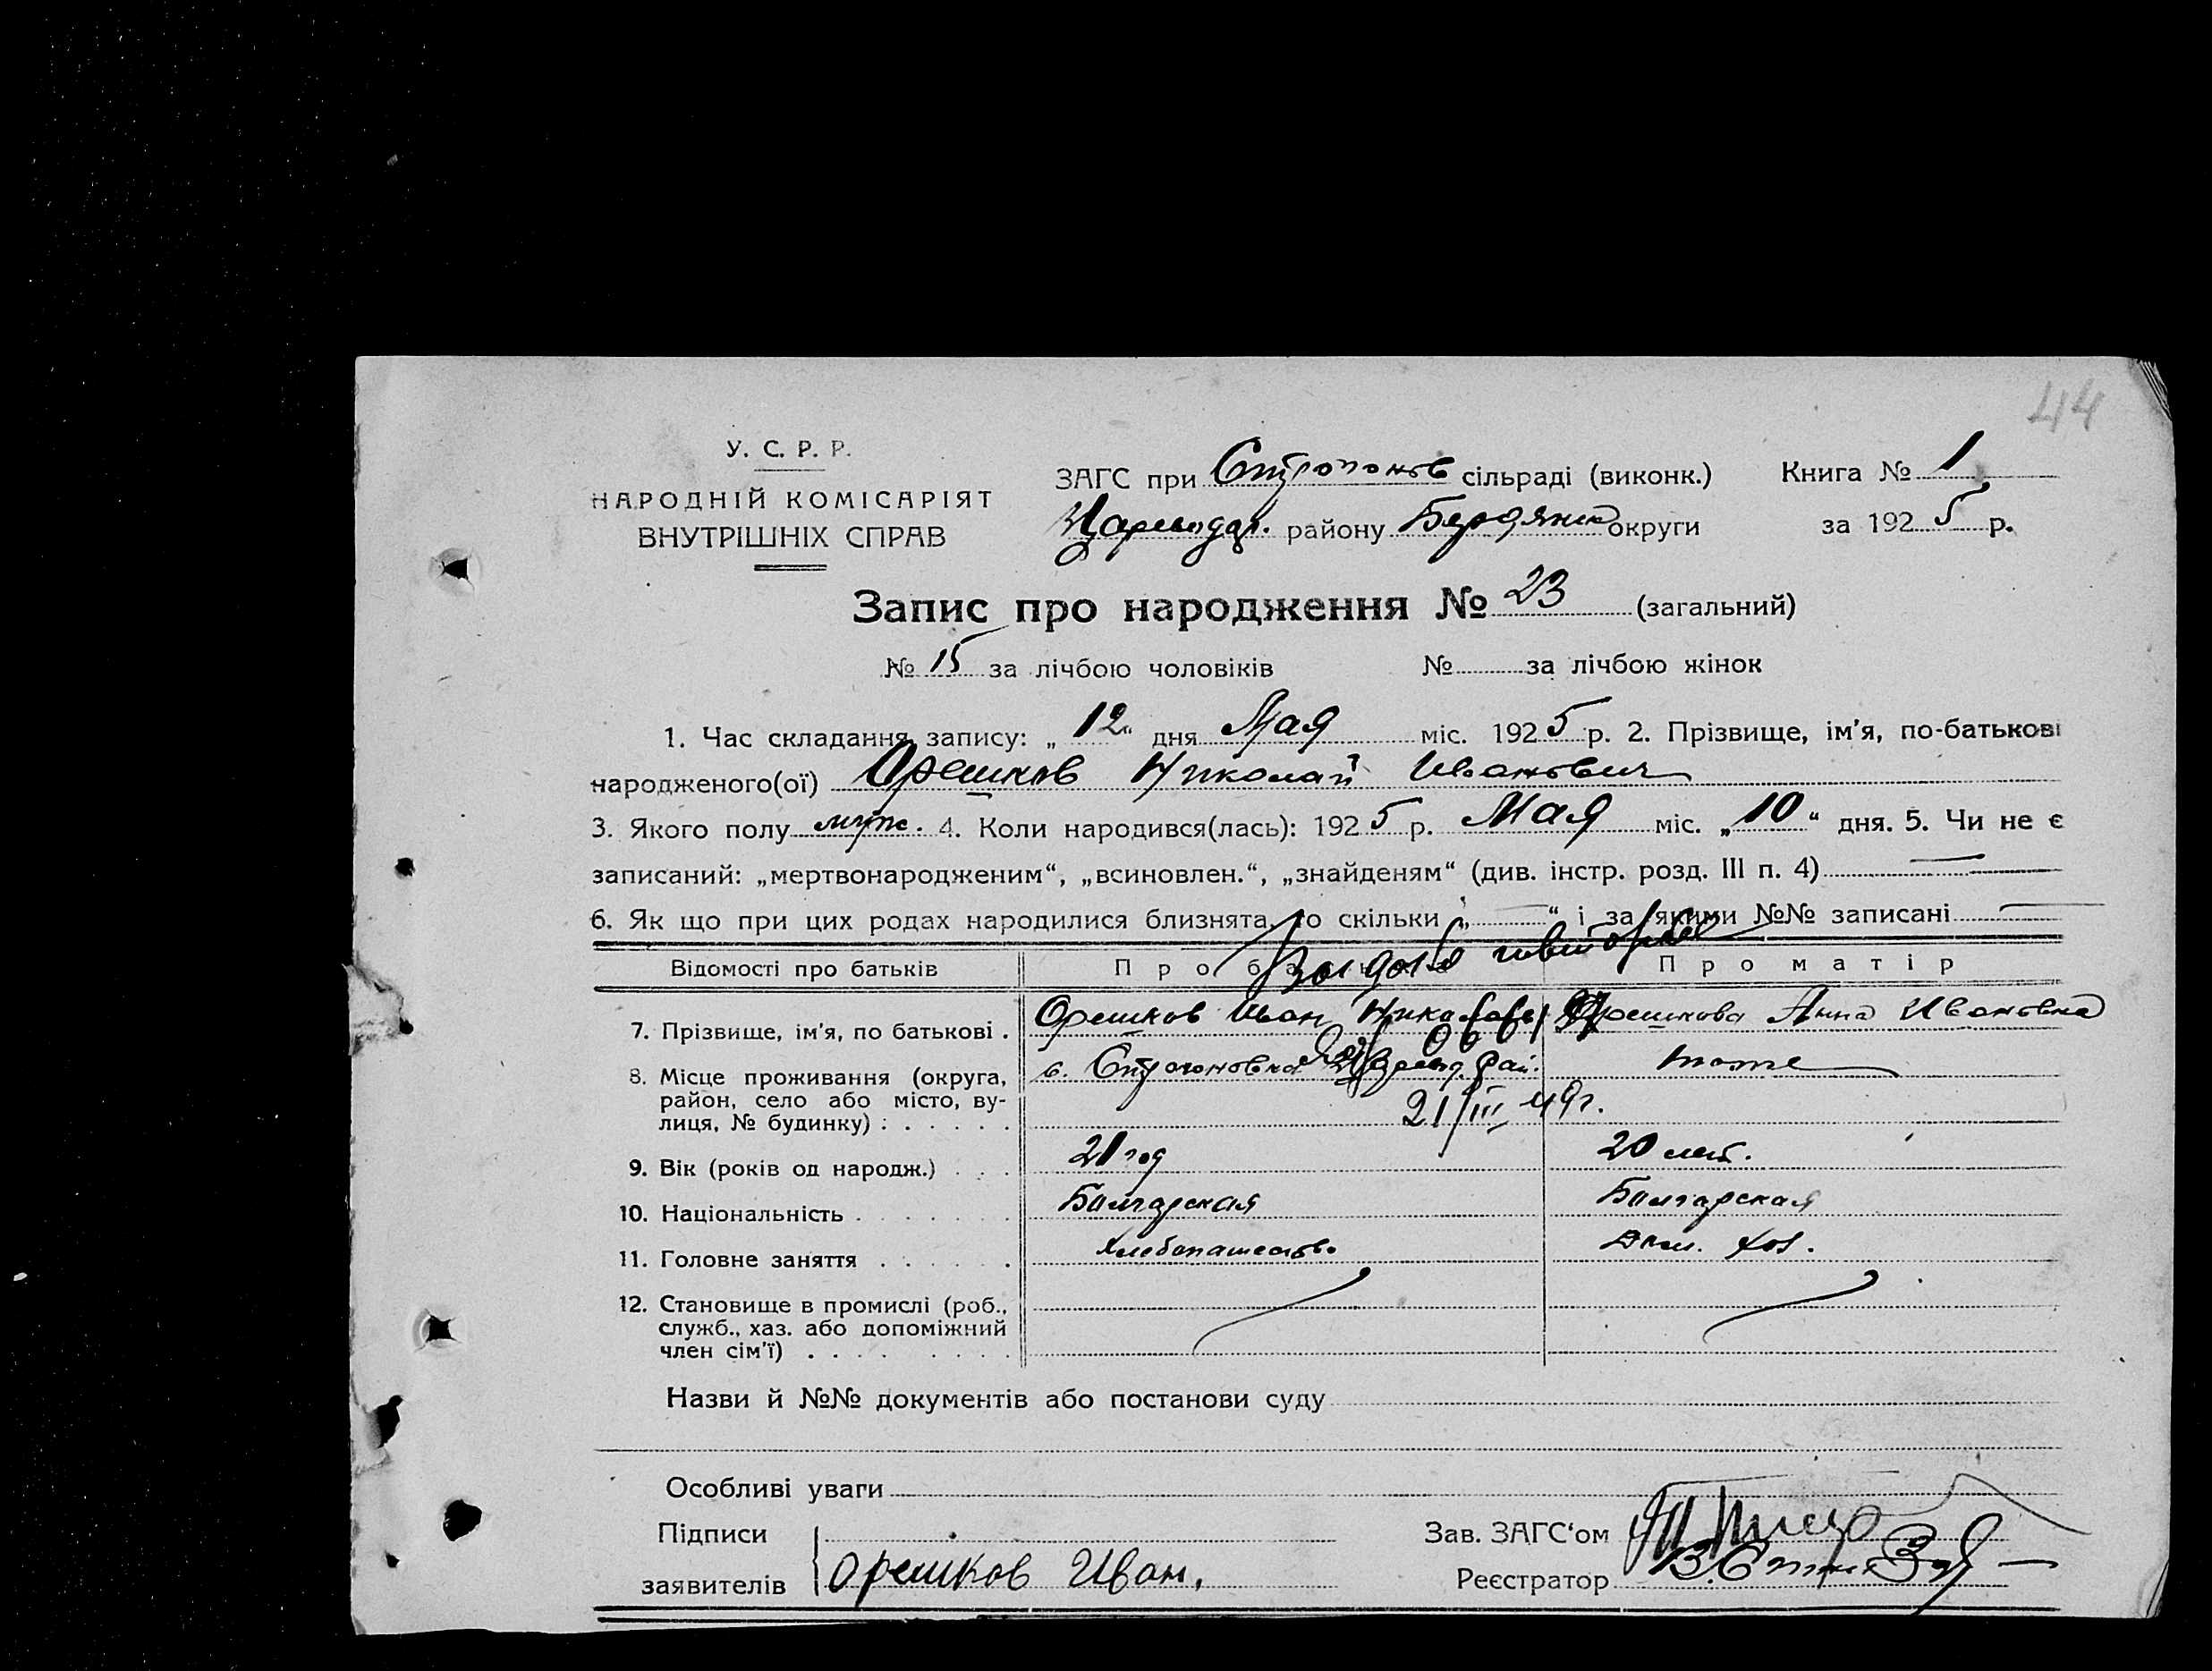 44
У. С. Р. Р.
НАРОДНІЙ КОМІСАРІЯТ
ВНУТРІШНІХ СПРАВ
ЗАГС при Строгонов сільраді (виконк.) Книга № 1
Цареводар. району Бердянск округи за 1925 р.
Запис про народження № 23 (загальний)
№ 15 за лічбою чоловіків № за лічбою жінок
1. Час складання запису: „12“ дня Мая міс. 1925 р. 2. Прізвище, ім'я, по-батькові
народженого(ої) Орешков Николай Иванович
3. Якого полу муж. 4. Коли народився(лась): 1925 р. Мая міс. „10“ дня. 5. Чи не є
записаний: „мертвонародженим“, „всиновлен.“, „знайденям“ (див. інстр. розд. III п. 4)
6. Як що при цих родах народилися близнята, то скільки „ “ і за якими №№ записані
Відомості про батьків Про батька Про матір
7. Прізвище, ім'я, по батькові . Орешков Иван Орешкова Анна Ивановна
8. Місце проживання (округа, с. Строгоновка рай. тоже
район, село або місто, ву-
лиця, № будинку) : . . . . . 21/III 49г.
9. Вік (років од народж.) . . . 21 год 20 лет.
10. Національність . . . . . . . Болгарская Болгарская
11. Головне заняття . . . . . . Хлебопашество Дом. хоз.
12. Становище в промислі (роб.,
служб., хаз. або допоміжний
член сім'ї) . . . . . . . .
Назви й №№ документів або постанови суду
Особливі уваги
Підписи Зав. ЗАГС'ом
заявителів Орешков Иван. Реєстратор